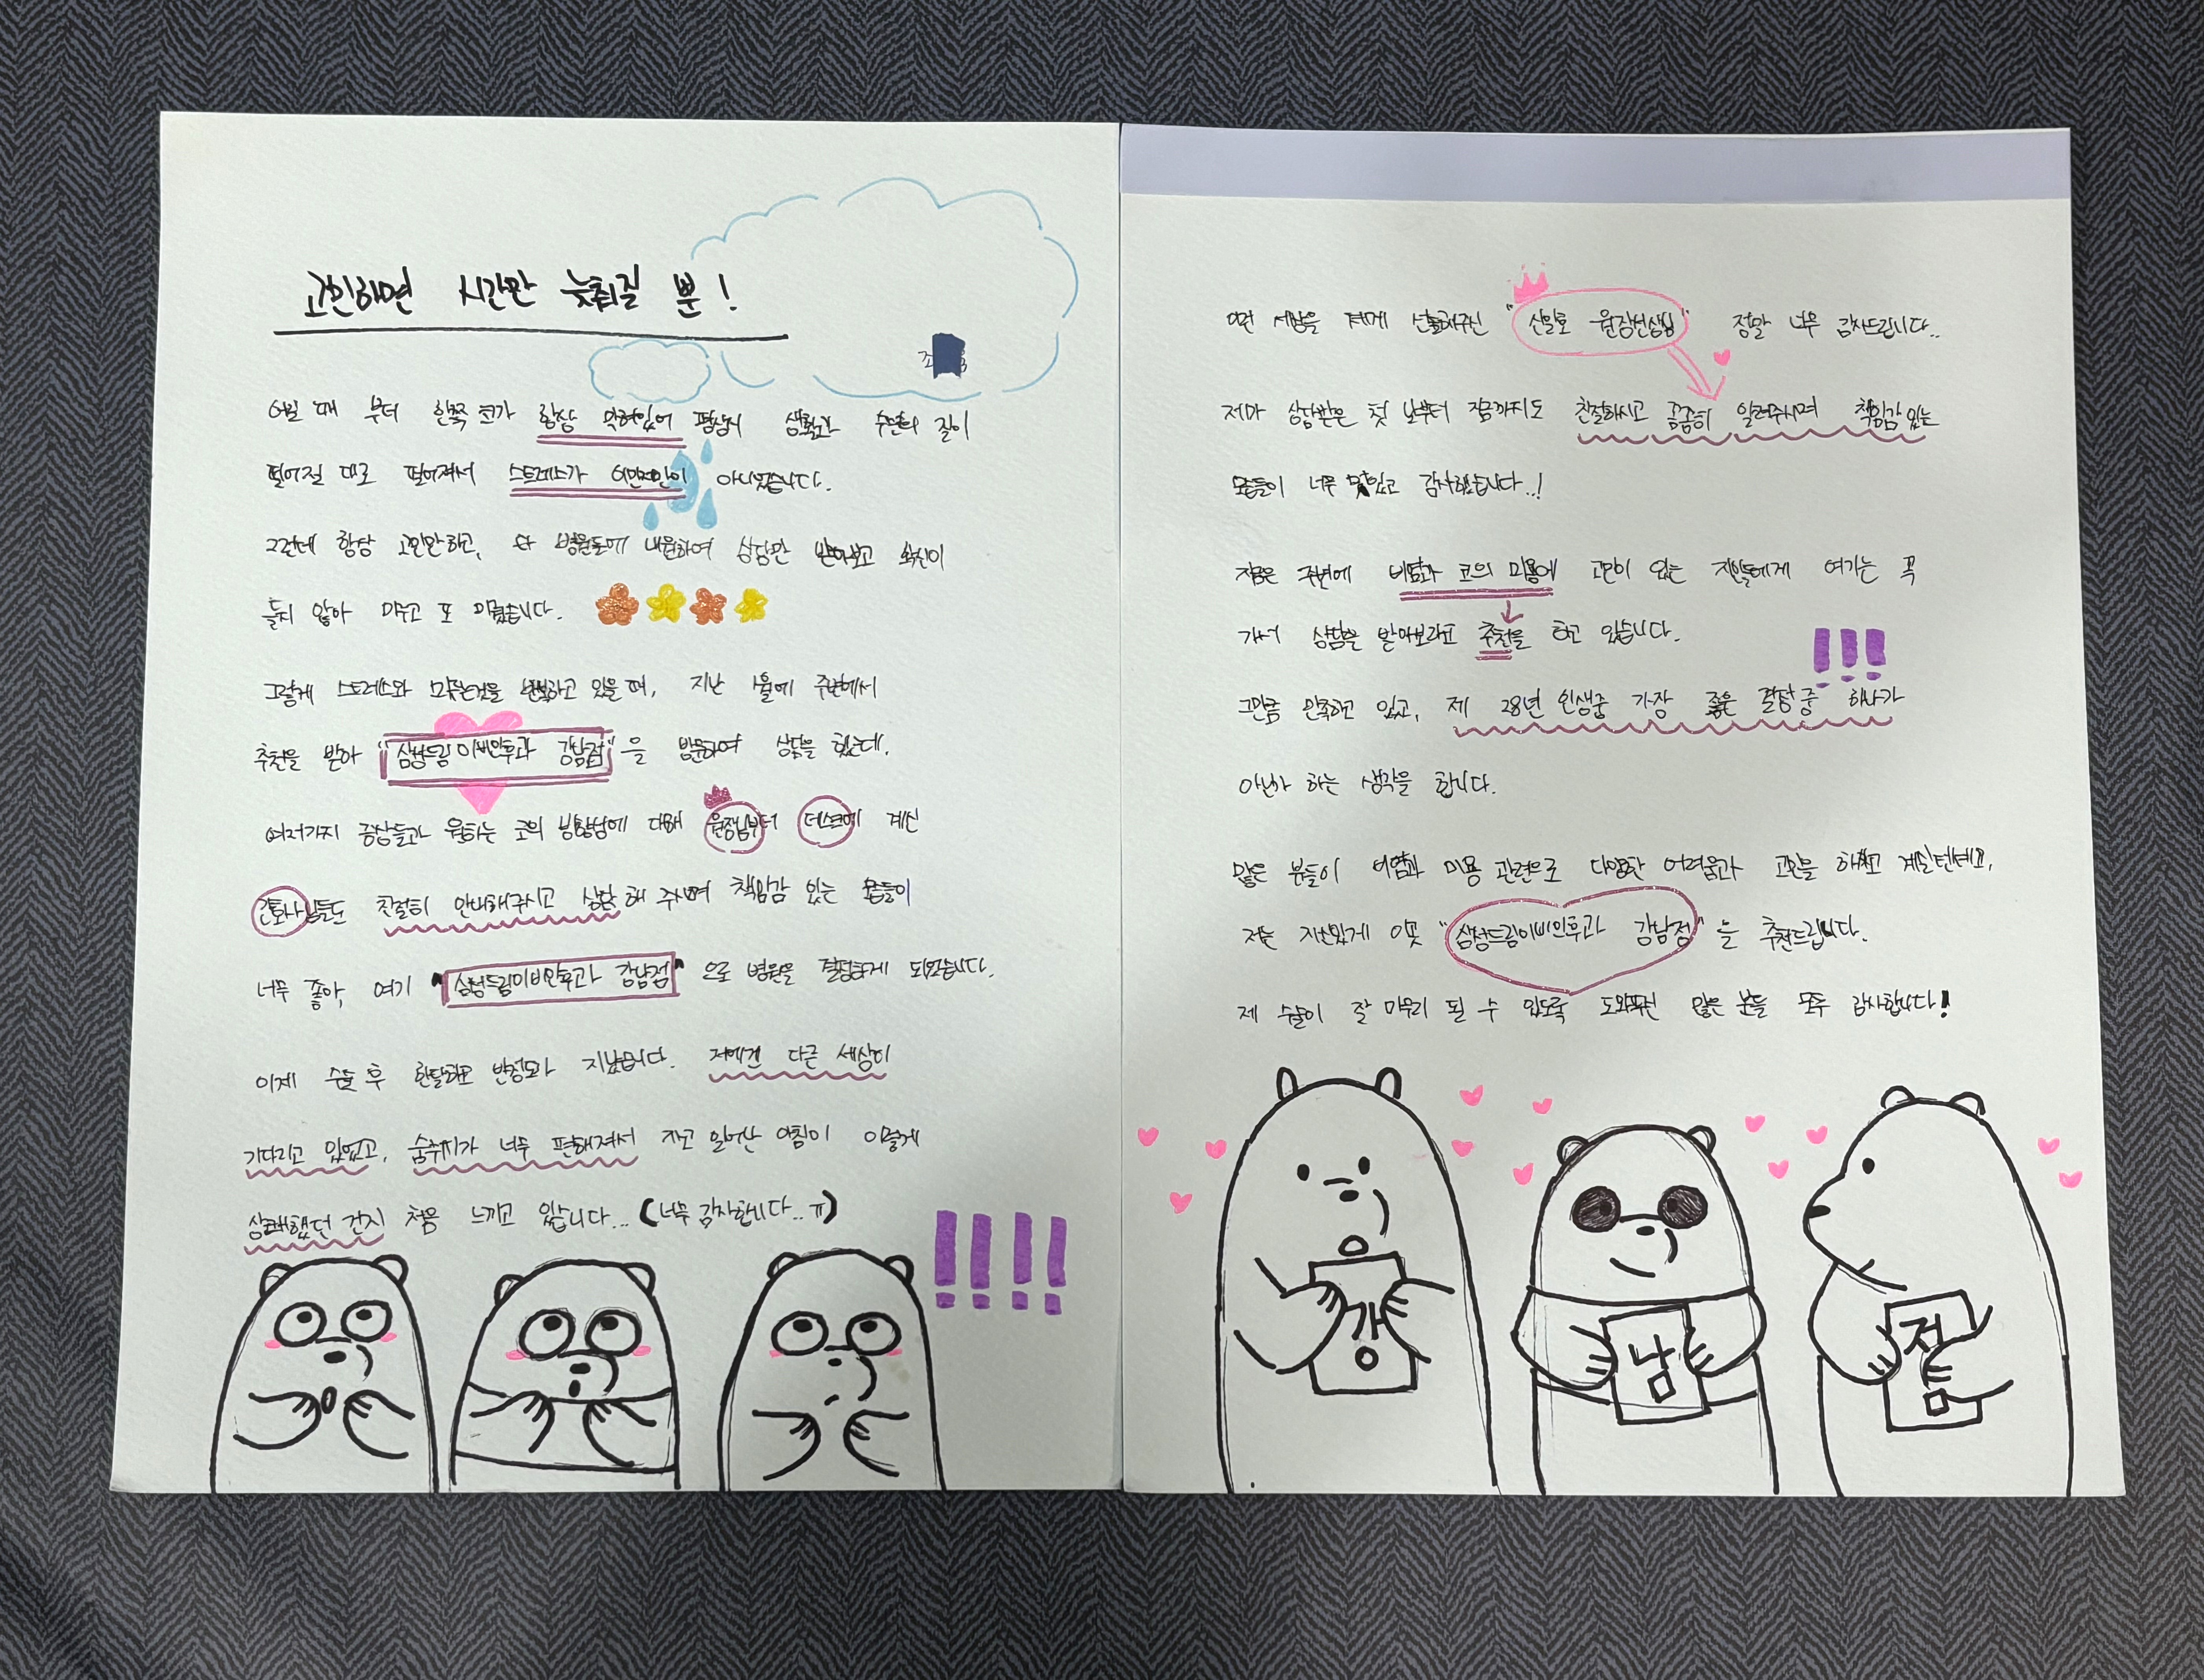 고민하면 시간만 늦춰질 뿐!
조
어릴 때 부터 한쪽 코가 항상 막혀있어 평상시 생활과 수면의 질이
떨어질 대로 떨어져서 스트레스가 이만저만이 아니었습니다.
그런데 항상 고민만하고, 타 병원들에 내원하여 상담만 받아보고 확신이
들지 않아 미루고 또 미뤘습니다.
그렇게 스트레스와 미루는것을 반복하고 있을 때, 지난 1월에 주변에서
추천을 받아 "삼성드림이비인후과 강남점"을 방문하여 상담을 했는데,
여러가지 증상들과 원하는 코의 방향성에 대해 원장님부터 데스크에 계신
간호사님들도 친절히 안내해주시고 상담 해 주시며 책임감 있는 모습들이
너무 좋아, 여기 "삼성드림이비인후과 강남점"으로 병원을 결정하게 되었습니다.
이제 수술 후 한달하고 반정도가 지났습니다. 저에겐 다른 세상이
기다리고 있었고, 숨쉬기가 너무 편해져서 자고 일어난 아침이 이렇게
상쾌했던 건지 처음 느끼고 있습니다... (너무 감사합니다..ㅠ)
!!!!
이런 세상을 저에게 선물해주신 "신일호 원장선생님" 정말 너무 감사드립니다..
제가 상담받은 첫 날부터 지금까지도 친절하시고 꼼꼼히 알려주시며 책임감있는
모습들이 너무 멋있고 감사했습니다..!
지금은 주변에 비염과 코의 미용에 고민이 있는 지인들에게 여기는 꼭
가서 상담은 받아보라고 추천을 하고 있습니다.
!!!
그만큼 만족하고 있고, 제 28년 인생중 가장 좋은 결정 중 하나가
아닌가 하는 생각을 합니다.
많은 분들이 비염과 미용 관련으로 다양한 어려움과 고민을 하고 계실텐데요,
저는 자신있게 이곳 "삼성드림이비인후과 강남점"을 추천드립니다.
제 수술이 잘 마무리 될 수 있도록 도와주신 많은 분들 모두 감사합니다!
강 남 점